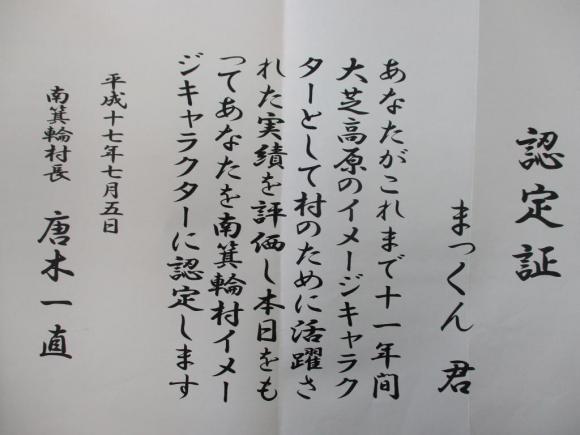 認定証
まっくん 君
あなたがこれまで十一年間
大芝高原のイメージキャラク
ターとして村のために活躍さ
れた実績を評価し本日をも
ってあなたを南箕輪村イメー
ジキャラクターに認定します
平成十七年七月五日
南箕輪村長 唐木一直